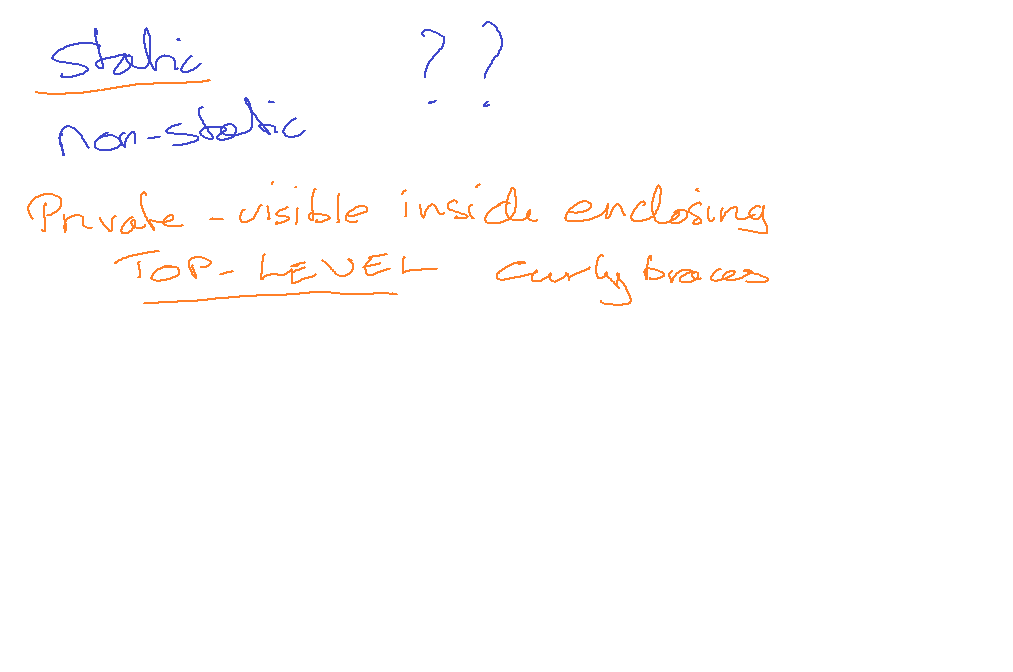 static ??
non-static
Private - visible inside enclosing
TOP-LEVEL curly braces